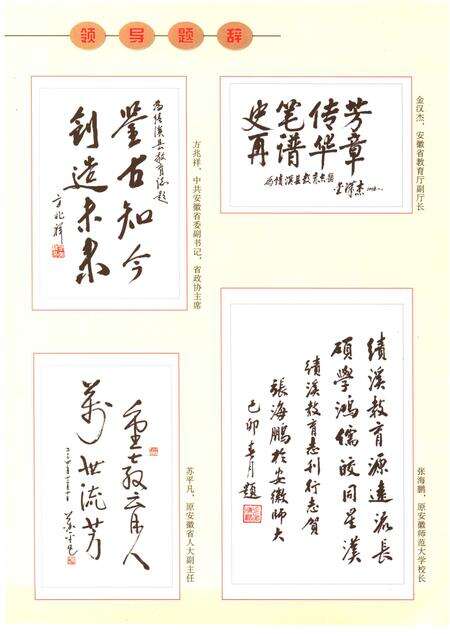 领导题辞
为绩溪县教育志题
鉴古知今
创造未来
方兆祥
方兆祥，中共安徽省委副书记、省政协主席
史笔传芳
再谱华章
为绩溪县教育志题
金汉杰
金汉杰，安徽省教育厅副厅长
重教育人
万世流芳
苏平凡
苏平凡，原安徽省人大副主任
績溪教育源遠流長
碩學鴻儒皎同星漢
績溪教育志刊行志賀
張海鵬於安徽師大
己卯春月題
张海鹏，原安徽师范大学校长